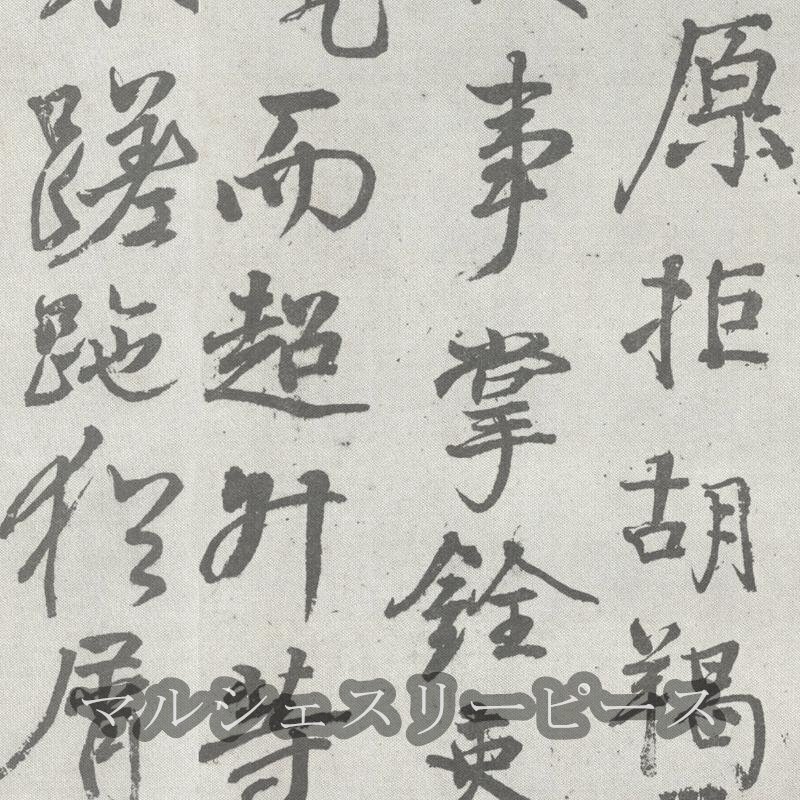 原拒胡羯
事掌銓吏
而超升等
蹉跎猶屑
マルシェスリーピース